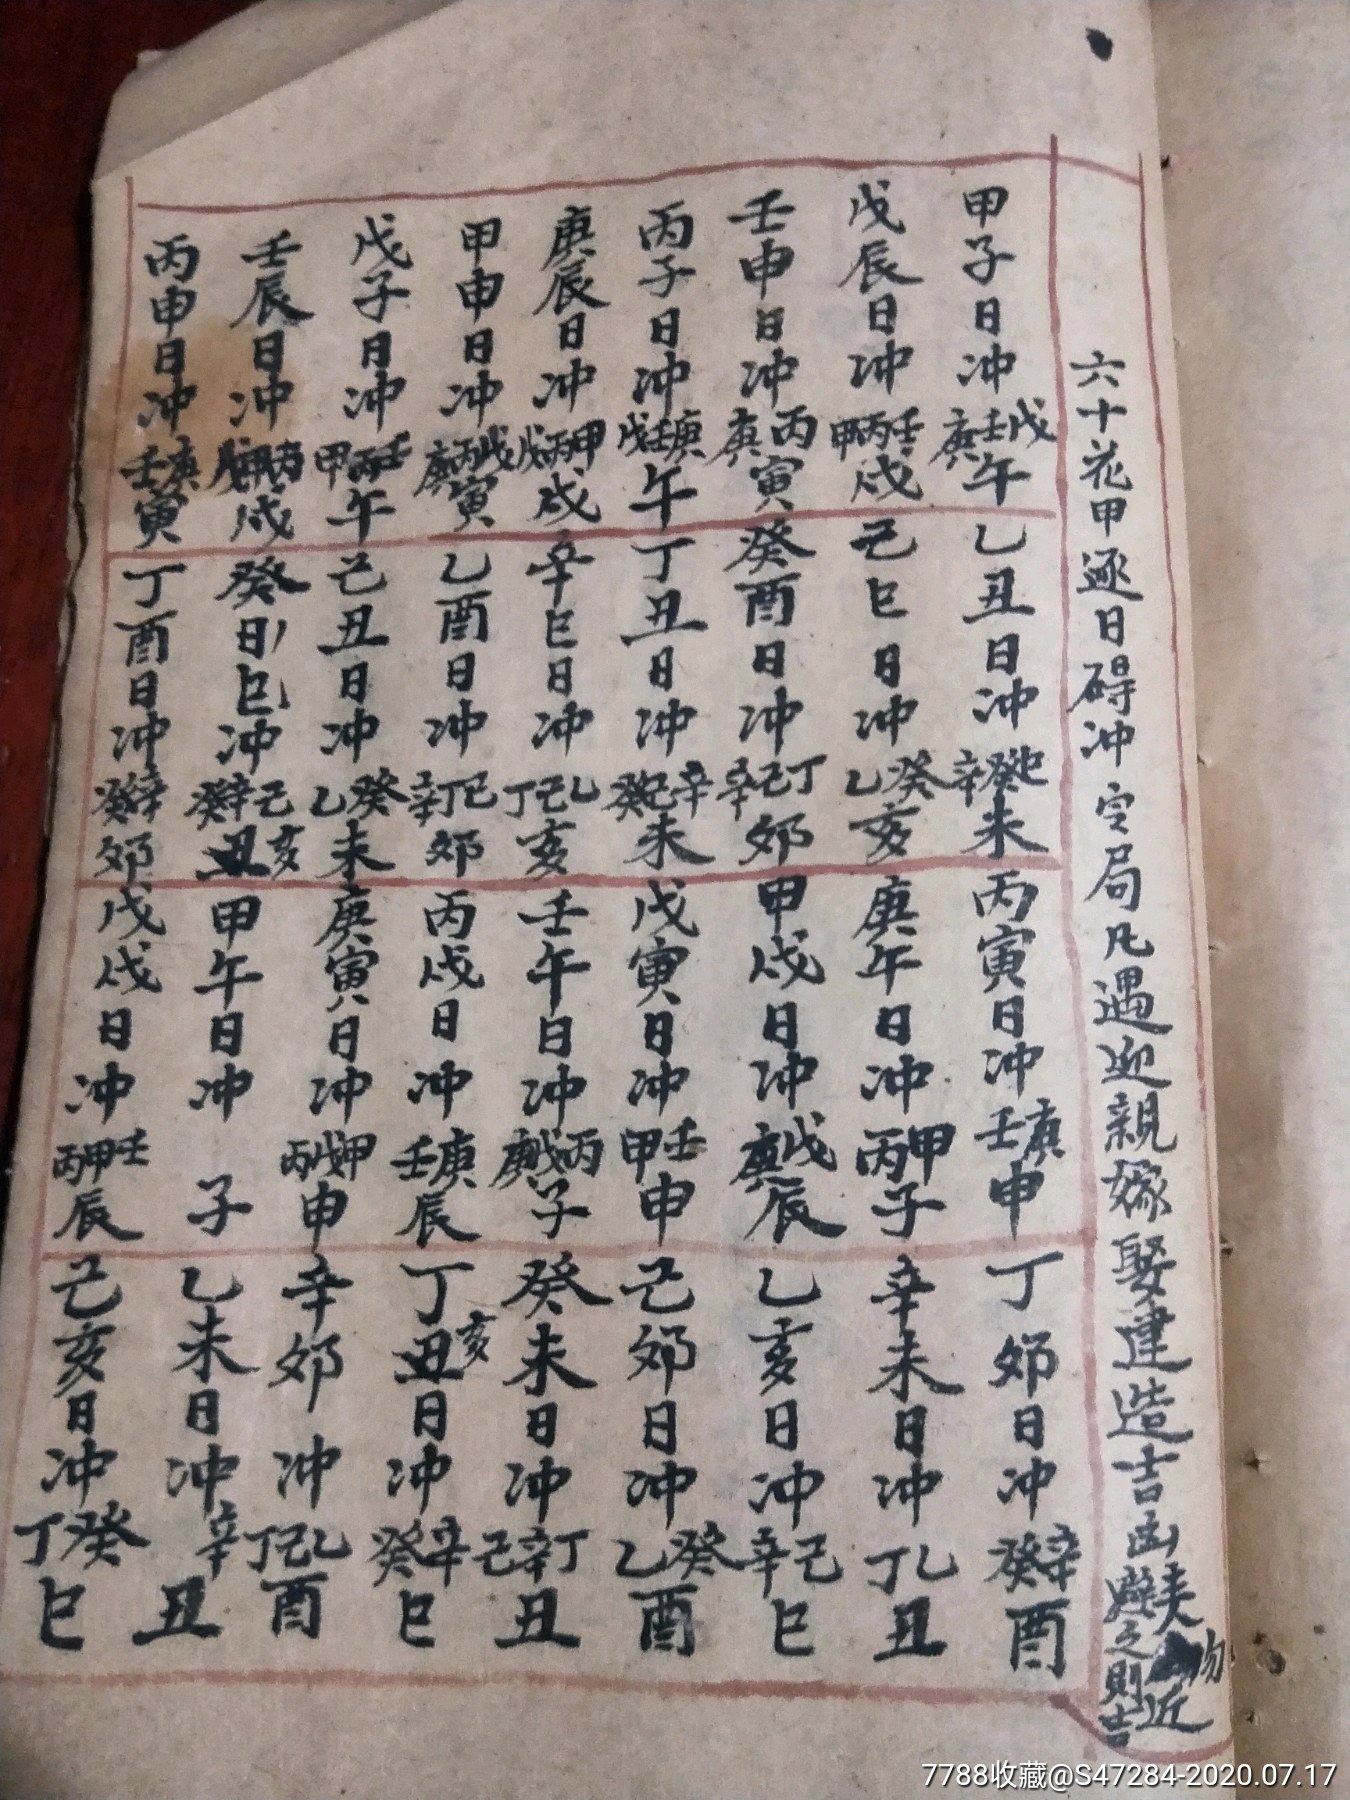 六十花甲逐日碍冲定局凡遇迎親嫁娶建造吉凶
夫勿近
避之則吉
甲子日冲戊壬庚午
乙丑日冲己癸辛未
丙寅日冲庚壬申
丁卯日冲辛癸酉
戊辰日冲壬丙甲戌
己巳日冲癸乙亥
庚午日冲甲丙子
辛未日冲乙丁丑
壬申日冲丙庚寅
癸酉日冲丁己辛卯
甲戌日冲戊庚辰
乙亥日冲己辛巳
丙子日冲庚壬戊午
丁丑日冲辛己癸未
戊寅日冲壬甲申
己卯日冲癸乙酉
庚辰日冲甲丙戊戌
辛巳日冲乙己丁亥
壬午日冲丙戊庚子
癸未日冲丁辛己丑
甲申日冲戊丙庚寅
乙酉日冲己丁辛卯
丙戌日冲庚壬辰
丁丑亥日冲辛癸巳
戊子日冲壬丙甲午
己丑日冲癸乙未
庚寅日冲甲戊丙申
辛卯冲乙己丁酉
壬辰日冲丙戌
癸日巳冲己辛癸丑亥
甲午日冲子
乙未日冲辛丑
丙申日冲庚壬寅
丁酉日冲辛癸卯
戊戌日冲壬甲丙辰
己亥日冲癸丁巳
7788收藏@S47284-2020.07.17